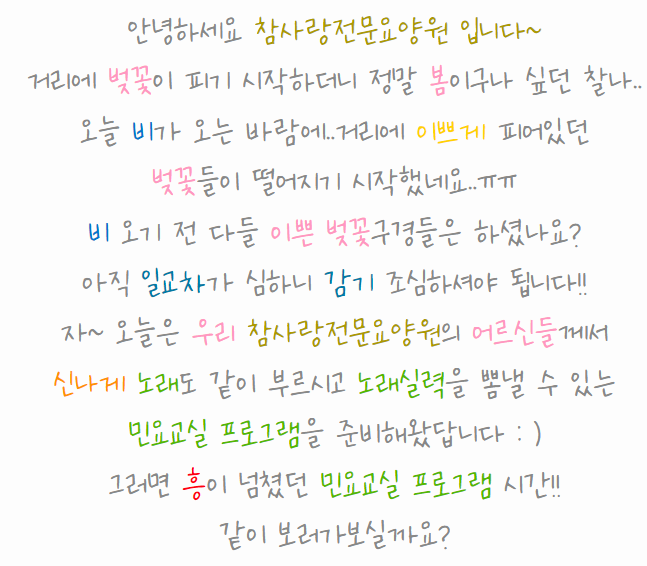 안녕하세요 참사랑전문요양원 입니다~
거리에 벚꽃이 피기 시작하더니 정말 봄이구나 싶던 찰나..
오늘 비가 오는 바람에..거리에 이쁘게 피어있던
벚꽃들이 떨어지기 시작했네요..ㅠㅠ
비 오기 전 다들 이쁜 벚꽃구경들은 하셨나요?
아직 일교차가 심하니 감기 조심하셔야 됩니다!!
자~ 오늘은 우리 참사랑전문요양원의 어르신들께서
신나게 노래도 같이 부르시고 노래실력을 뽐낼 수 있는
민요교실 프로그램을 준비해왔답니다 : )
그러면 흥이 넘쳤던 민요교실 프로그램 시간!!
같이 보러가보실까요?